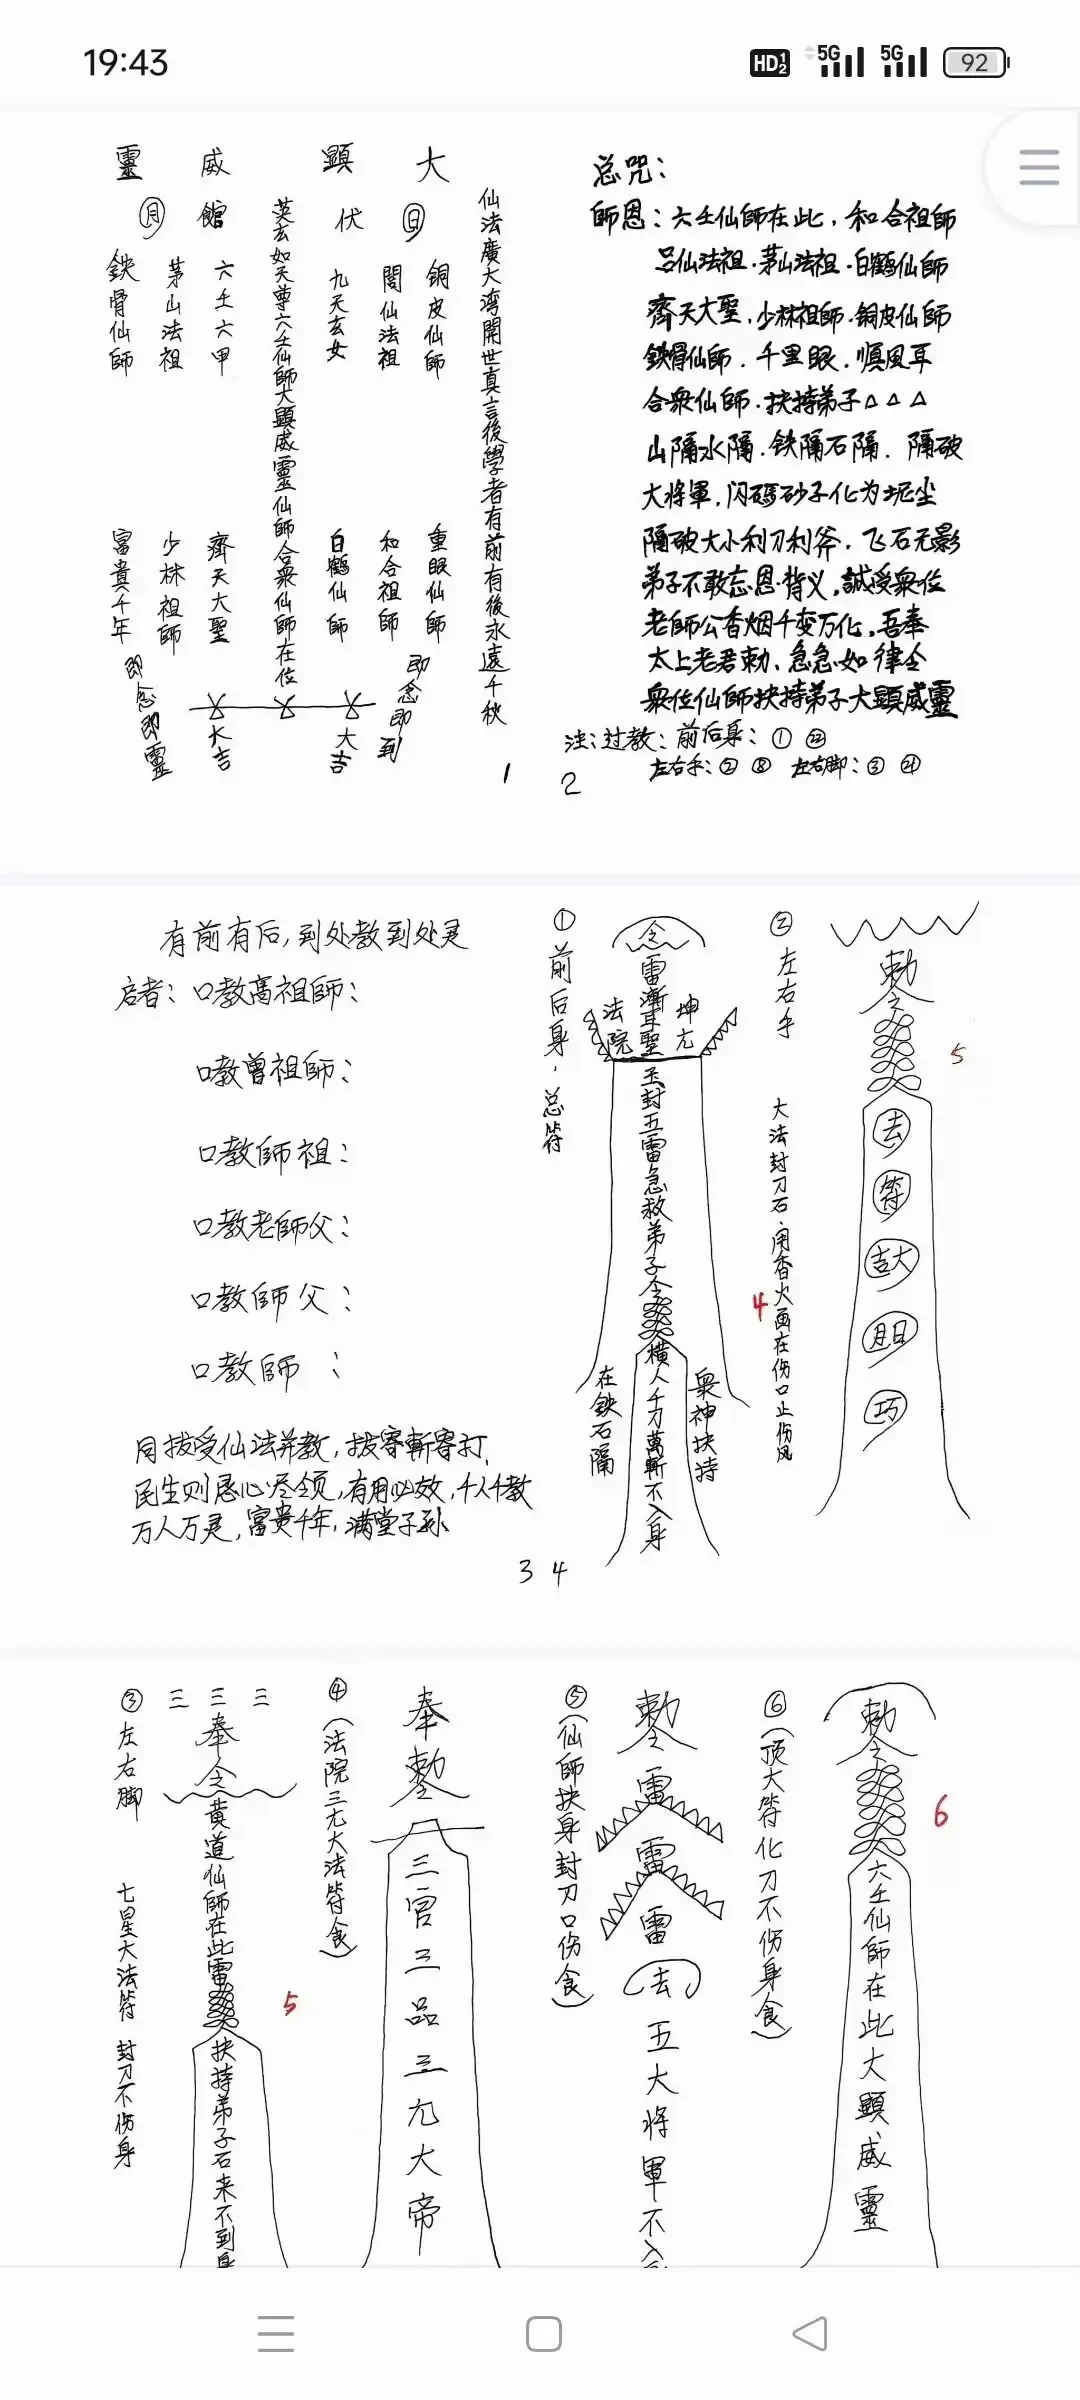 19:43
HD 1 2
5G
5G
92
大顯威靈
仙法廣大湾開世真言後學者有前有後永遠千秋
日
伏
館
月
銅皮仙師
閭仙法祖
九天玄女
英玄如天尊六壬仙師大顯威靈仙師合衆仙師在位
六壬六甲
茅山法祖
鉄骨仙師
重眼仙師
和合祖師
白鶴仙師
齊天大聖
少林祖師
富貴千年
即念即到
大吉
大吉
即念即靈
1
总咒：
師恩：六壬仙師在此，和合祖師
吕仙法祖·茅山法祖·白鶴仙師
齊天大聖，少林祖師·銅皮仙師
鉄骨仙師．千里眼．順風耳
合衆仙師．扶持弟子△△△
山隔水隔．铁隔石隔．隔破
大将軍，闪碼砂子化为坭尘
隔破大小利刀利斧．飞石无影
弟子不敢忘恩背义，誠受衆位
老師公香烟千变万化，吾奉
太上老君勅．急急如律令
衆位仙師扶持弟子大顯威靈
注：过教：前后身：① ㉒
左右手：② ⑧ 左右脚：③ ㉔
2
有前有后，到处教到处灵
启者：口教高祖師：
口教曾祖師：
口教師祖：
口教老師父：
口教師父：
口教師：
同拔受仙法并教，拔寄斬寄打，
民生则悉心尽领，有用必效，千人千教
万人万灵，富贵千年，满堂子孙
3 4
① 前后身．总符
令
雷漸耳聖
法院
坤亢
玉封五雷急救弟子令
橫人千刀萬斬不入身
在鉄石隔
衆神扶持
② 左右手
大法封刀石．用香火画在伤口止伤风
4
勅令
去
符
吉大
月日
巧
5
③ 左右脚
七星大法符 封刀不伤身
三 三 三
奉令
黄道仙師在此雷
扶持弟子石来不到身
5
④（法院三元大法符食）
奉勅令
三官三品三九大帝
⑤（仙師扶身封刀口伤食）
勅令
雷
雷
雷
去
五大将軍不入
⑥（顶大符化刀不伤身食）
勅令
六壬仙師在此大顯威靈
6